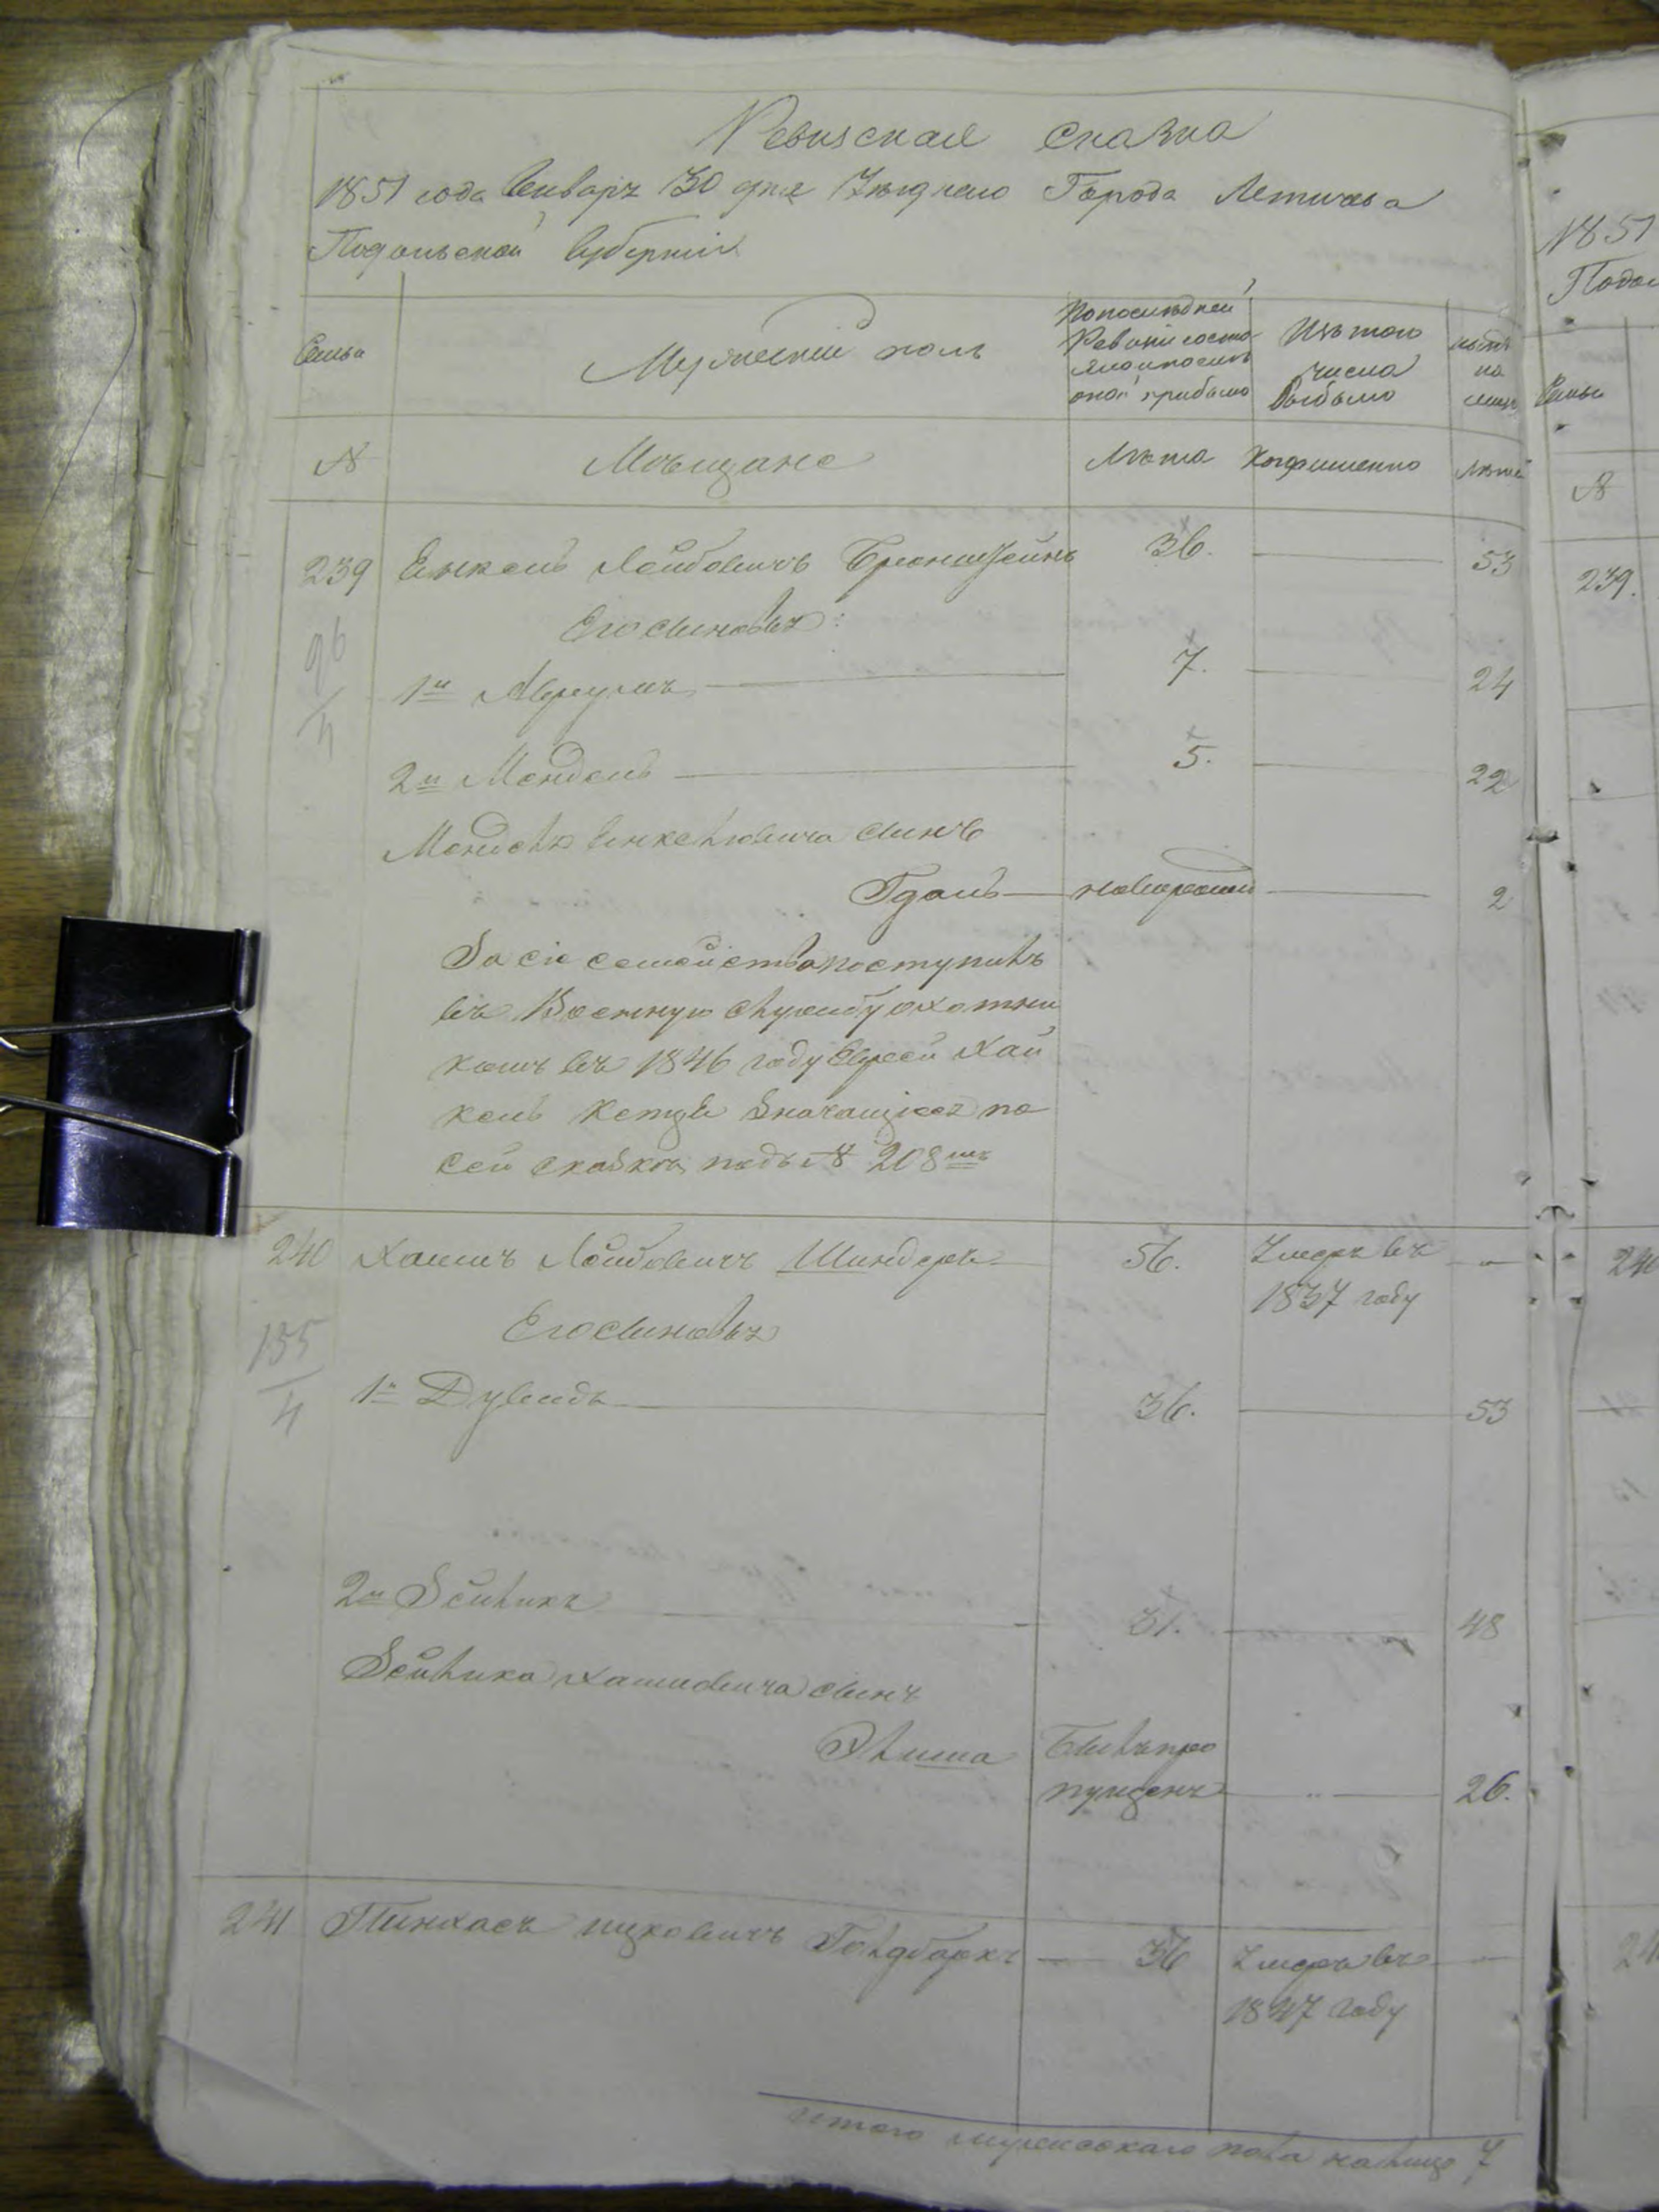 Ревизская Сказка
1851 года Генваря 30 дня Уезднаго Города Летичева
Подольской Губерніи
Семьи
Мужескій полъ
По последней Ревизіи состояло и после оной прибыло
Изъ того числа выбыло
ныне на лицо
№
Мещане
Лета
Когда именно
Летъ
239 Енкель Лейбовичъ Бронштейнъ 36. 53
Его сыновья:
96/4
1й Аврумъ 7. 24
2й Мендель 5. 22
Менделя Енкелювича сынъ
новорожд 2
За сіе семейство поступилъ
въ Военную службу охотни
комъ въ 1846 году Еврей Хай
кель значащійся по
сей сказке подъ № 208мъ
240 Хаимъ Лейбовичъ Шиндеръ 56. Умеръ въ
1837 году
Его сыновья
155/4
1й Дувидъ 36. 53
2й Зейликъ 31. 48
Зейлика Хаимовича сынъ
Элиша Былъ про
пущенъ 26.
241 Пинхасъ Ицковичъ Голдборхъ 36 Умеръ въ
1847 году
итого мужескаго пола налицо 7
N851
Подол
Семьи
№
239.
240
24